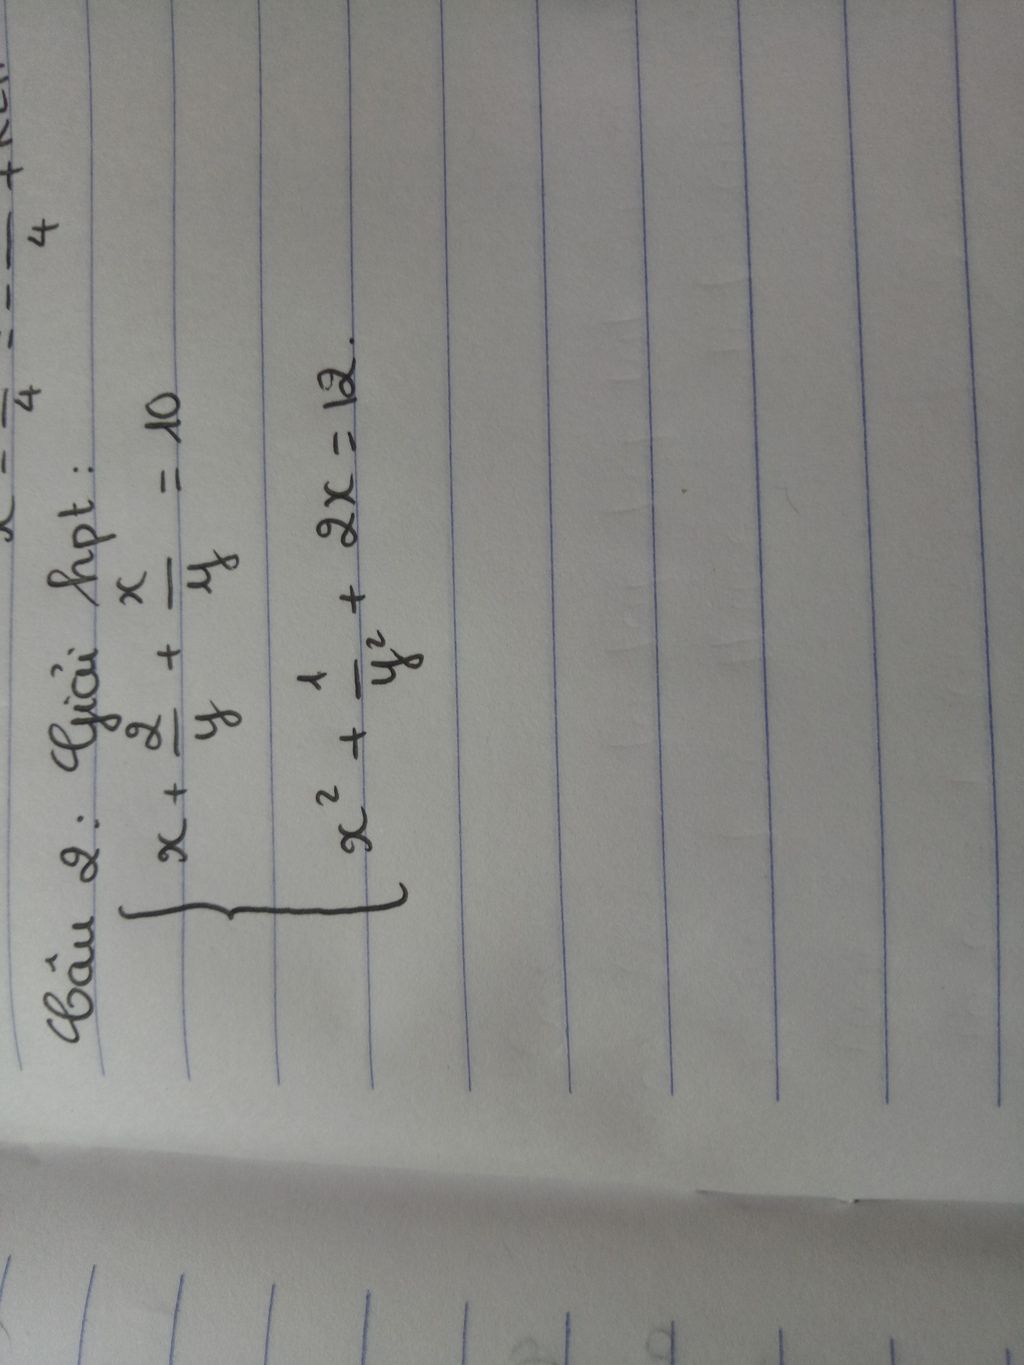 Câu 2: Giải hpt:
x + 2/y + x/y = 10
x² + 1/y² + 2x = 12.